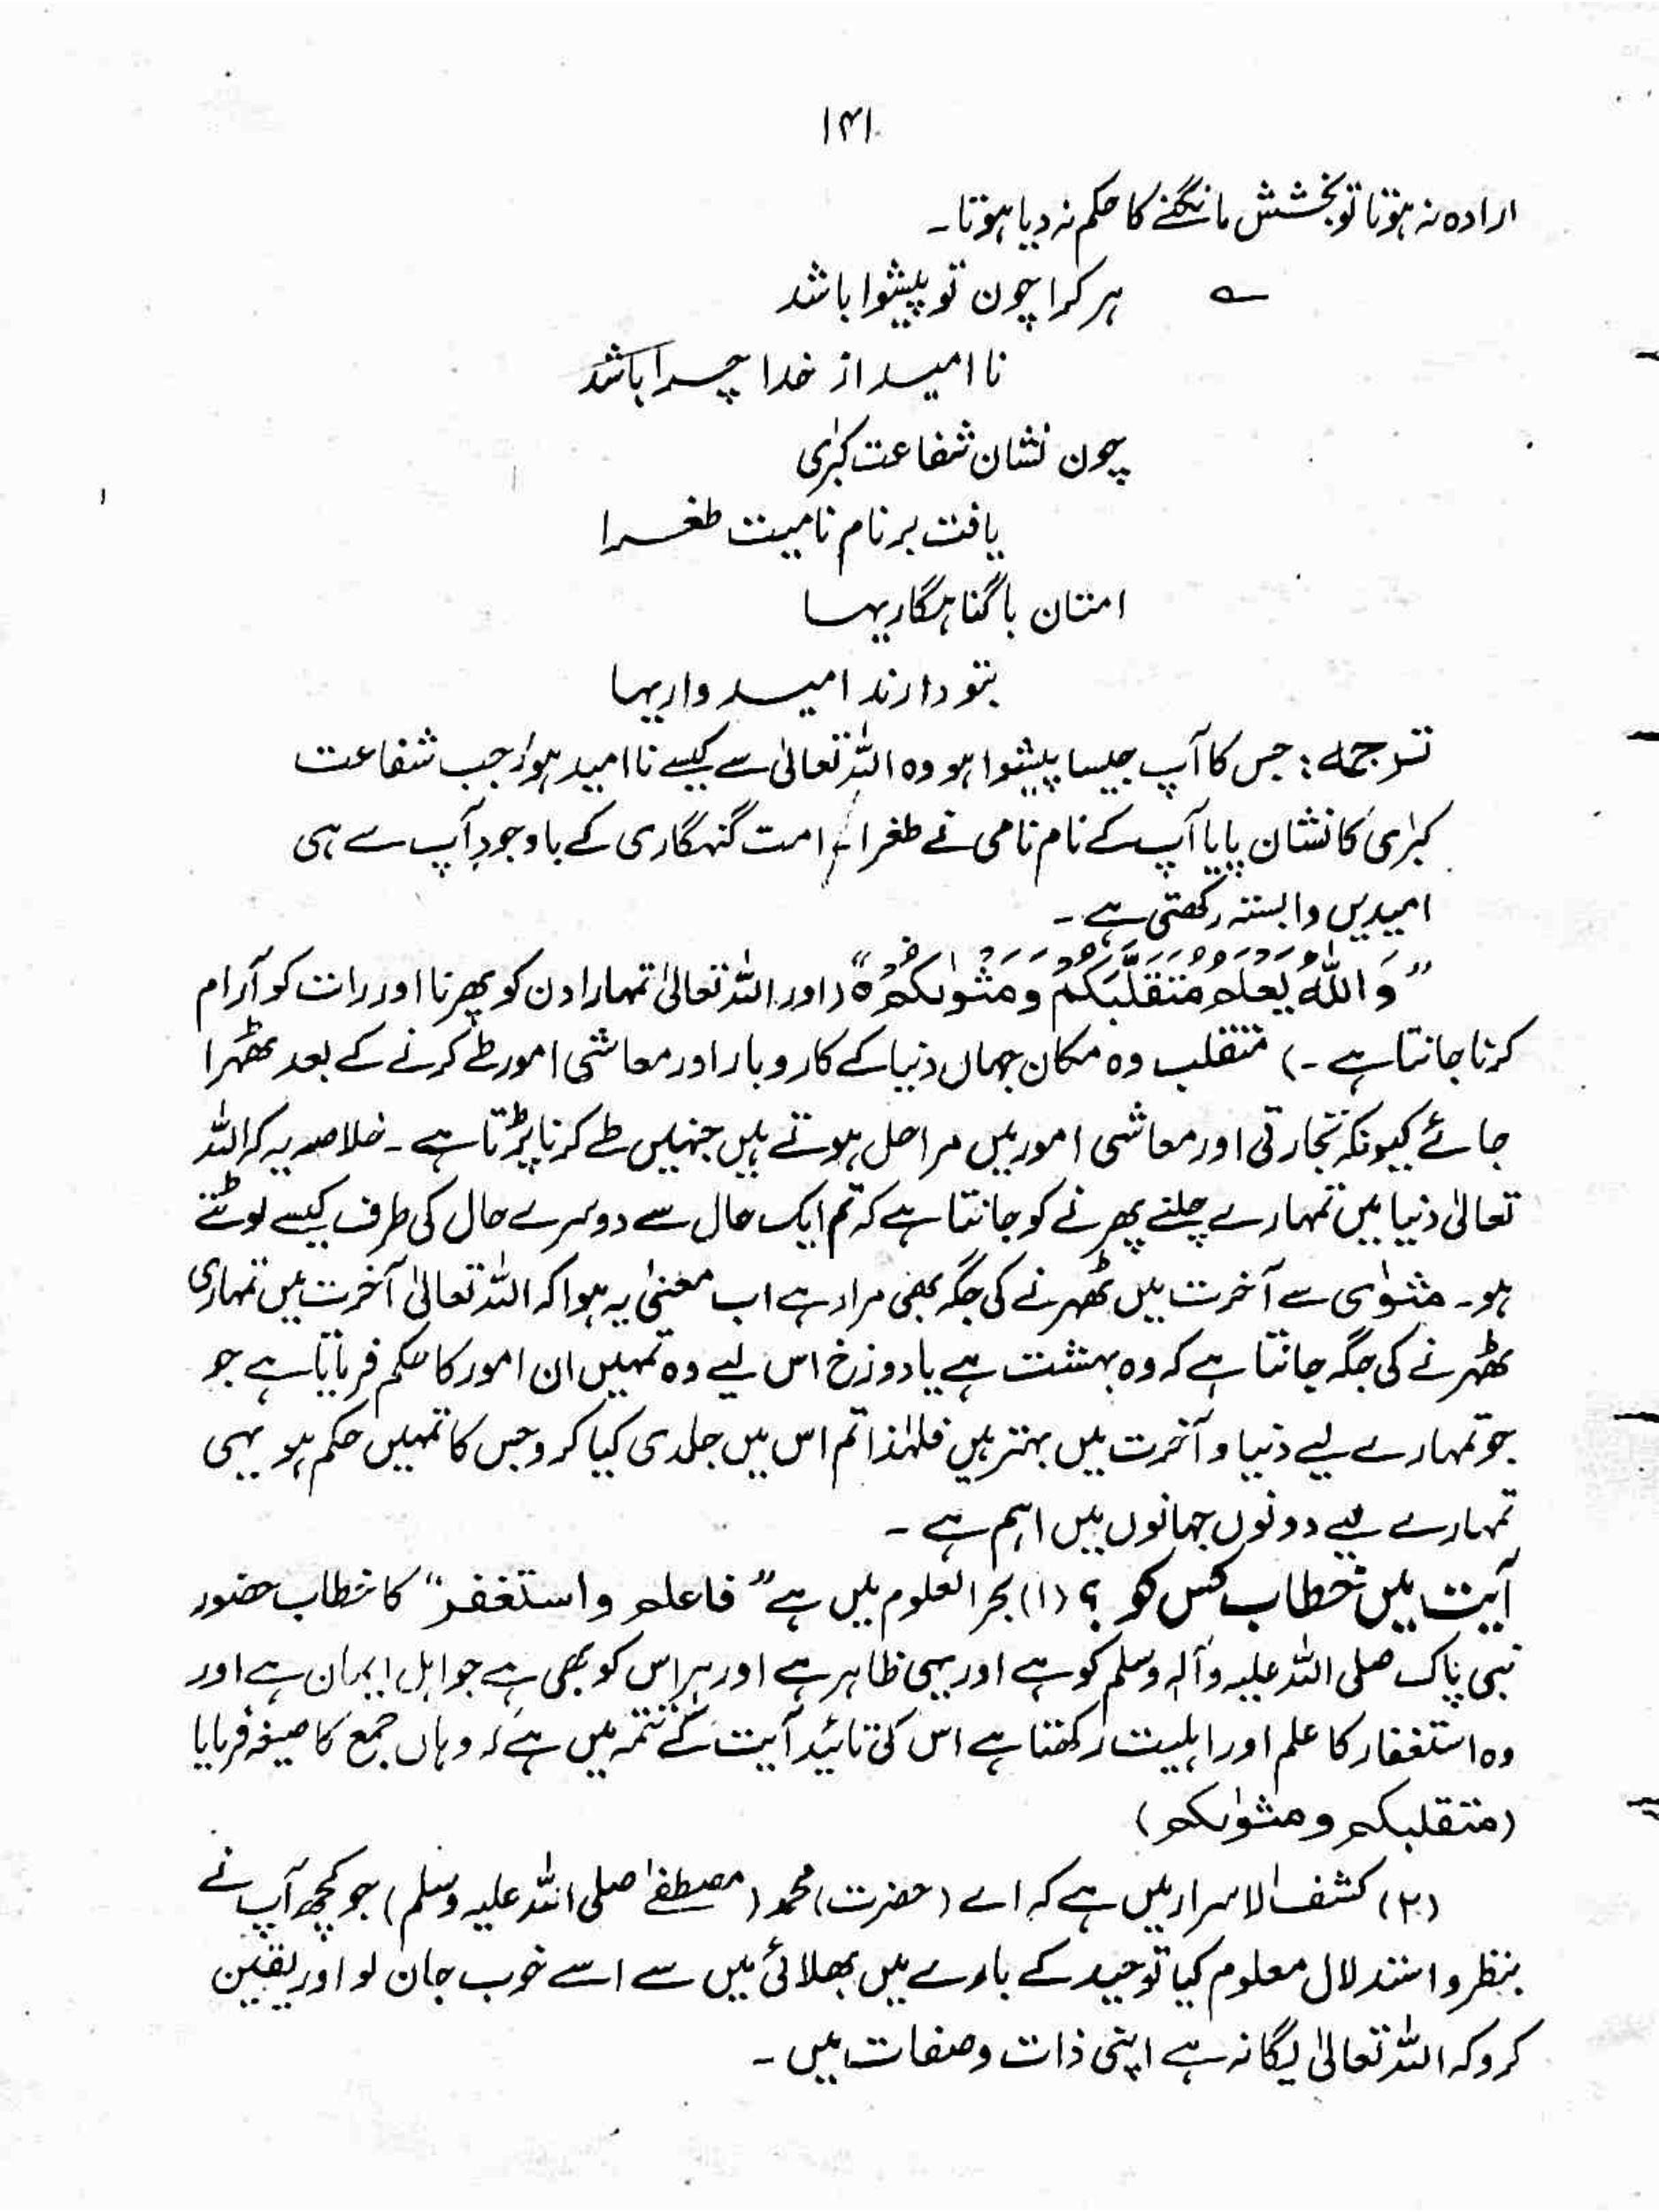 ۱۴۱
ارادہ نہ ہوتا تو بخشش مانگنے کا حکم نہ دیا ہوتا۔
؎ ہر کرا چون تو پیشوا باشد
نا امید از خدا چرا باشد
چون نشان شفاعت کبرٰی
یافت بر نام نامیت طغرا
امتان با گناہگاریہا
بتو دارند امید واریہا
ترجمہ: جس کا آپ جیسا پیشوا ہو وہ اللہ تعالیٰ سے کیسے ناامید ہو، جب شفاعت
کبرٰی کا نشان پایا آپ کے نام نامی نے طغرا، امت گنہگاری کے باوجود آپ سے ہی
امیدیں وابستہ رکھتی ہے۔
”وَاللّٰهُ يَعْلَمُ مُتَقَلَّبَكُمْ وَمَثْوٰىكُمْ ۀ“ (اور اللہ تعالیٰ تمہارا دن کو پھرنا اور رات کو آرام
کرنا جانتا ہے۔) متقلب وہ مکان جہاں دنیا کے کاروبار اور معاشی امور طے کرنے کے بعد ٹھہرا
جائے کیونکہ تجارتی اور معاشی امور میں مراحل ہوتے ہیں جنہیں طے کرنا پڑتا ہے۔ خلاصہ یہ کہ اللہ
تعالیٰ دنیا میں تمہارے چلنے پھرنے کو جانتا ہے کہ تم ایک حال سے دوسرے حال کی طرف کیسے لوٹتے
ہو۔ مثوٰی سے آخرت میں ٹھہرنے کی جگہ بھی مراد ہے اب معنیٰ یہ ہوا کہ اللہ تعالیٰ آخرت میں تمہاری
ٹھہرنے کی جگہ جانتا ہے کہ وہ بہشت ہے یا دوزخ اس لیے وہ تمہیں ان امور کا حکم فرماتا ہے جو
جو تمہارے لیے دنیا و آخرت میں بہتر ہیں فلہٰذا تم اس میں جلدی کیا کرو جس کا تمہیں حکم ہو یہی
تمہارے لیے دونوں جہانوں میں اہم ہے۔
آیت میں خطاب کس کو ؟ (۱) بحر العلوم میں ہے ”فاعلم واستغفر“ کا خطاب حضور
نبی پاک صلی اللہ علیہ وآلہ وسلم کو ہے اور یہی ظاہر ہے اور ہر اس کو بھی ہے جو اہل ایمان ہے اور
وہ استغفار کا علم اور اہلیت رکھتا ہے اس کی تائید آیت کے تتمہ میں ہے کہ وہاں جمع کا صیغہ فرمایا
(متقلبکم ومثوٰىکم)
(۲) کشف الاسرار میں ہے کہ اے (حضرت) محمد (مصطفےٰ صلی اللہ علیہ وسلم) جو کچھ آپ نے
بنظر و استدلال معلوم کیا توحید کے بارے میں بھلائی میں سے اسے خوب جان لو اور یقین
کرو کہ اللہ تعالیٰ یگانہ ہے اپنی ذات و صفات میں۔